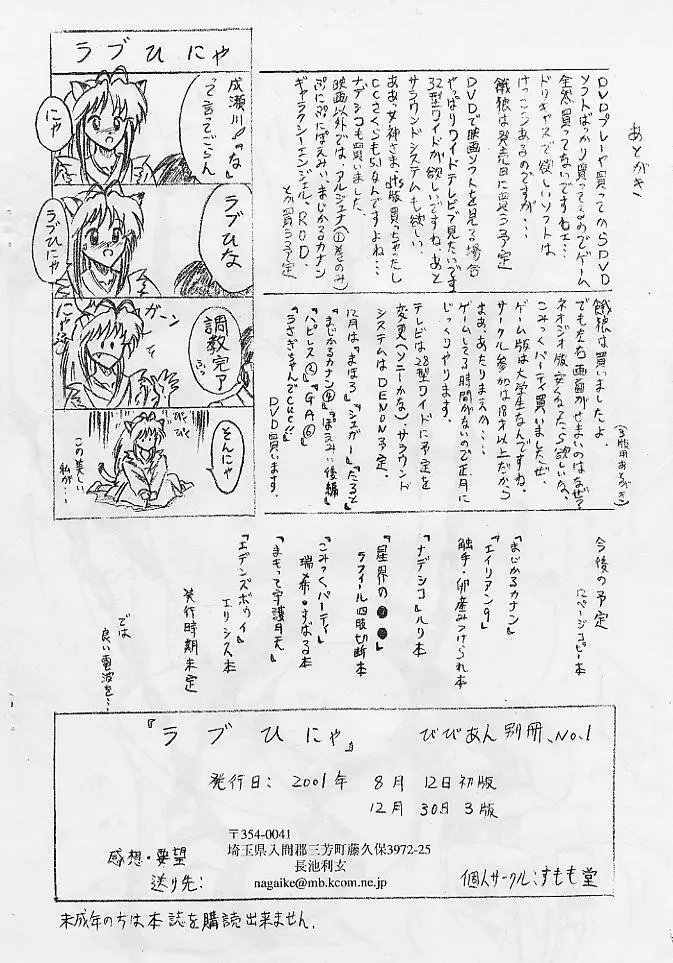 ラブひにゃ
成瀬川「な」
って言ってごらん
にゃ
ラブひな
ラブひにゃ
ガーン
調教完了
そんにゃ
この美しい
私が・・・
あとがき
DVDプレーヤ買ってからDVD
ソフトばっかり買ってるのでゲーム
全然買ってないですねェ・・・
ドリキャスで欲しいソフトは
けっこうあるのですが・・・
餓狼は発売日に買う予定
DVDで映画ソフトを見る場合
やっぱりワイドテレビで見たいです
32型ワイドが欲しいですね。あと
サラウンドシステムも欲しい。
ああっ女神さまっdts版買っちゃったし
CCさくらも5.1なんですよね・・・
ナデシコも買いました。
映画以外では、アルジュナ(①巻のみ)
ぷにぷにぽえみぃ、まじかるカナン
ギャラクシーエンジェル、R.O.D.
とか買う予定
餓狼は買いましたよ。
(3版用あとがき)
でも左右画面がせまいのはなぜ?
ネオジオ版安くなったら欲しいな。
こみっくパーティ買いましたぜ。
ゲーム版は大学生なんですね。
サークル参加は18才以上だから
まぁ、あたりまえか・・・
ゲームしてる時間がないので正月に
じっくりやります。
テレビは28型ワイドに予定を
変更(ソニーかな)、サラウンド
システムはDENON予定。
12月は『まほろ』『ジェガー』『だるど』
『まじかるカナン④』『ぽえみぃ後編』
『ハピレス②』『GA⑥』
『うさぎちゃんでCue!!』
DVD買います。
今後の予定
12ページコピー本
『まじかるカナン』
『エイリアン9』
触手・卵産みつけられ本
『ナデシコ』ルリ本
『星界の●●』
ラフィール四肢切断本
『こみっくパーティ』
瑞希・すばる本
『まもって守護月天』
『エデンズボゥイ』
エリシス本
発行時期未定
では
良い電波を・・・
『ラブひにゃ』 びびあん別冊、No.1
発行日: 2001年 8月 12日初版
12月 30日 3版
〒354-0041
埼玉県入間郡三芳町藤久保3972-25
長池利玄
nagaike@mb.kcom.ne.jp
感想・要望
送り先:
個人サークル:すもも堂
未成年の方は本誌を購読出来ません.